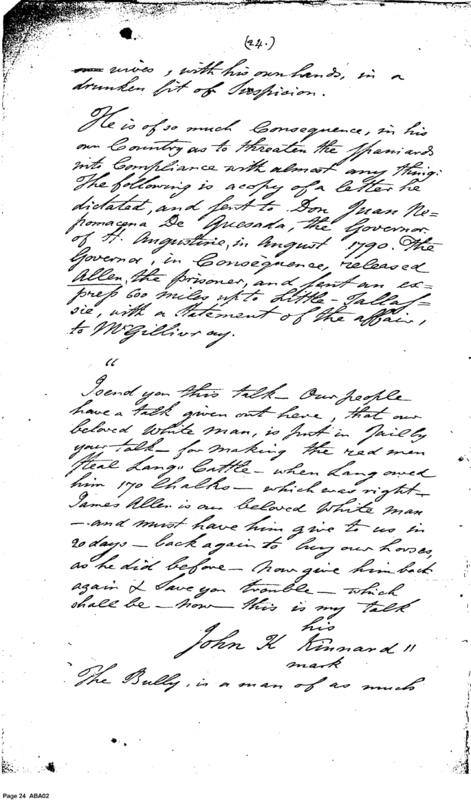 (24.)
wives, with his own hands, in a
drunken fit of Suspicion.
He is of so much Consequence, in his
own Country as to threaten the Spaniards
into Compliance with almost any thing.
The following is a copy of a letter he
dictated, and sent to Don Juan Ne-
pomacena De Quesada, the Governor
of St. Augustine, in August 1790. The
Governor, in Consequence, released
Allen, the prisoner, and sent an ex-
press 600 miles up to Little-Tallas-
sie, with a Statement of the affair,
to McGillivray.
"
I send you this talk — Our people
have a talk given out here, that our
beloved White man, is put in Jail by
your talk — for making the red men
Steal Langs Cattle — when Lang owed
him 170 Chalks — which was right —
James Allen is our beloved White man
— and must have him give to us in
20 days — back again to buy our horses,
as he did before — Now give him back
again & Save you trouble — which
shall be — now — this is my talk
his
John K Kinnard "
mark
The Bully, is a man of as much
Page 24 ABA02